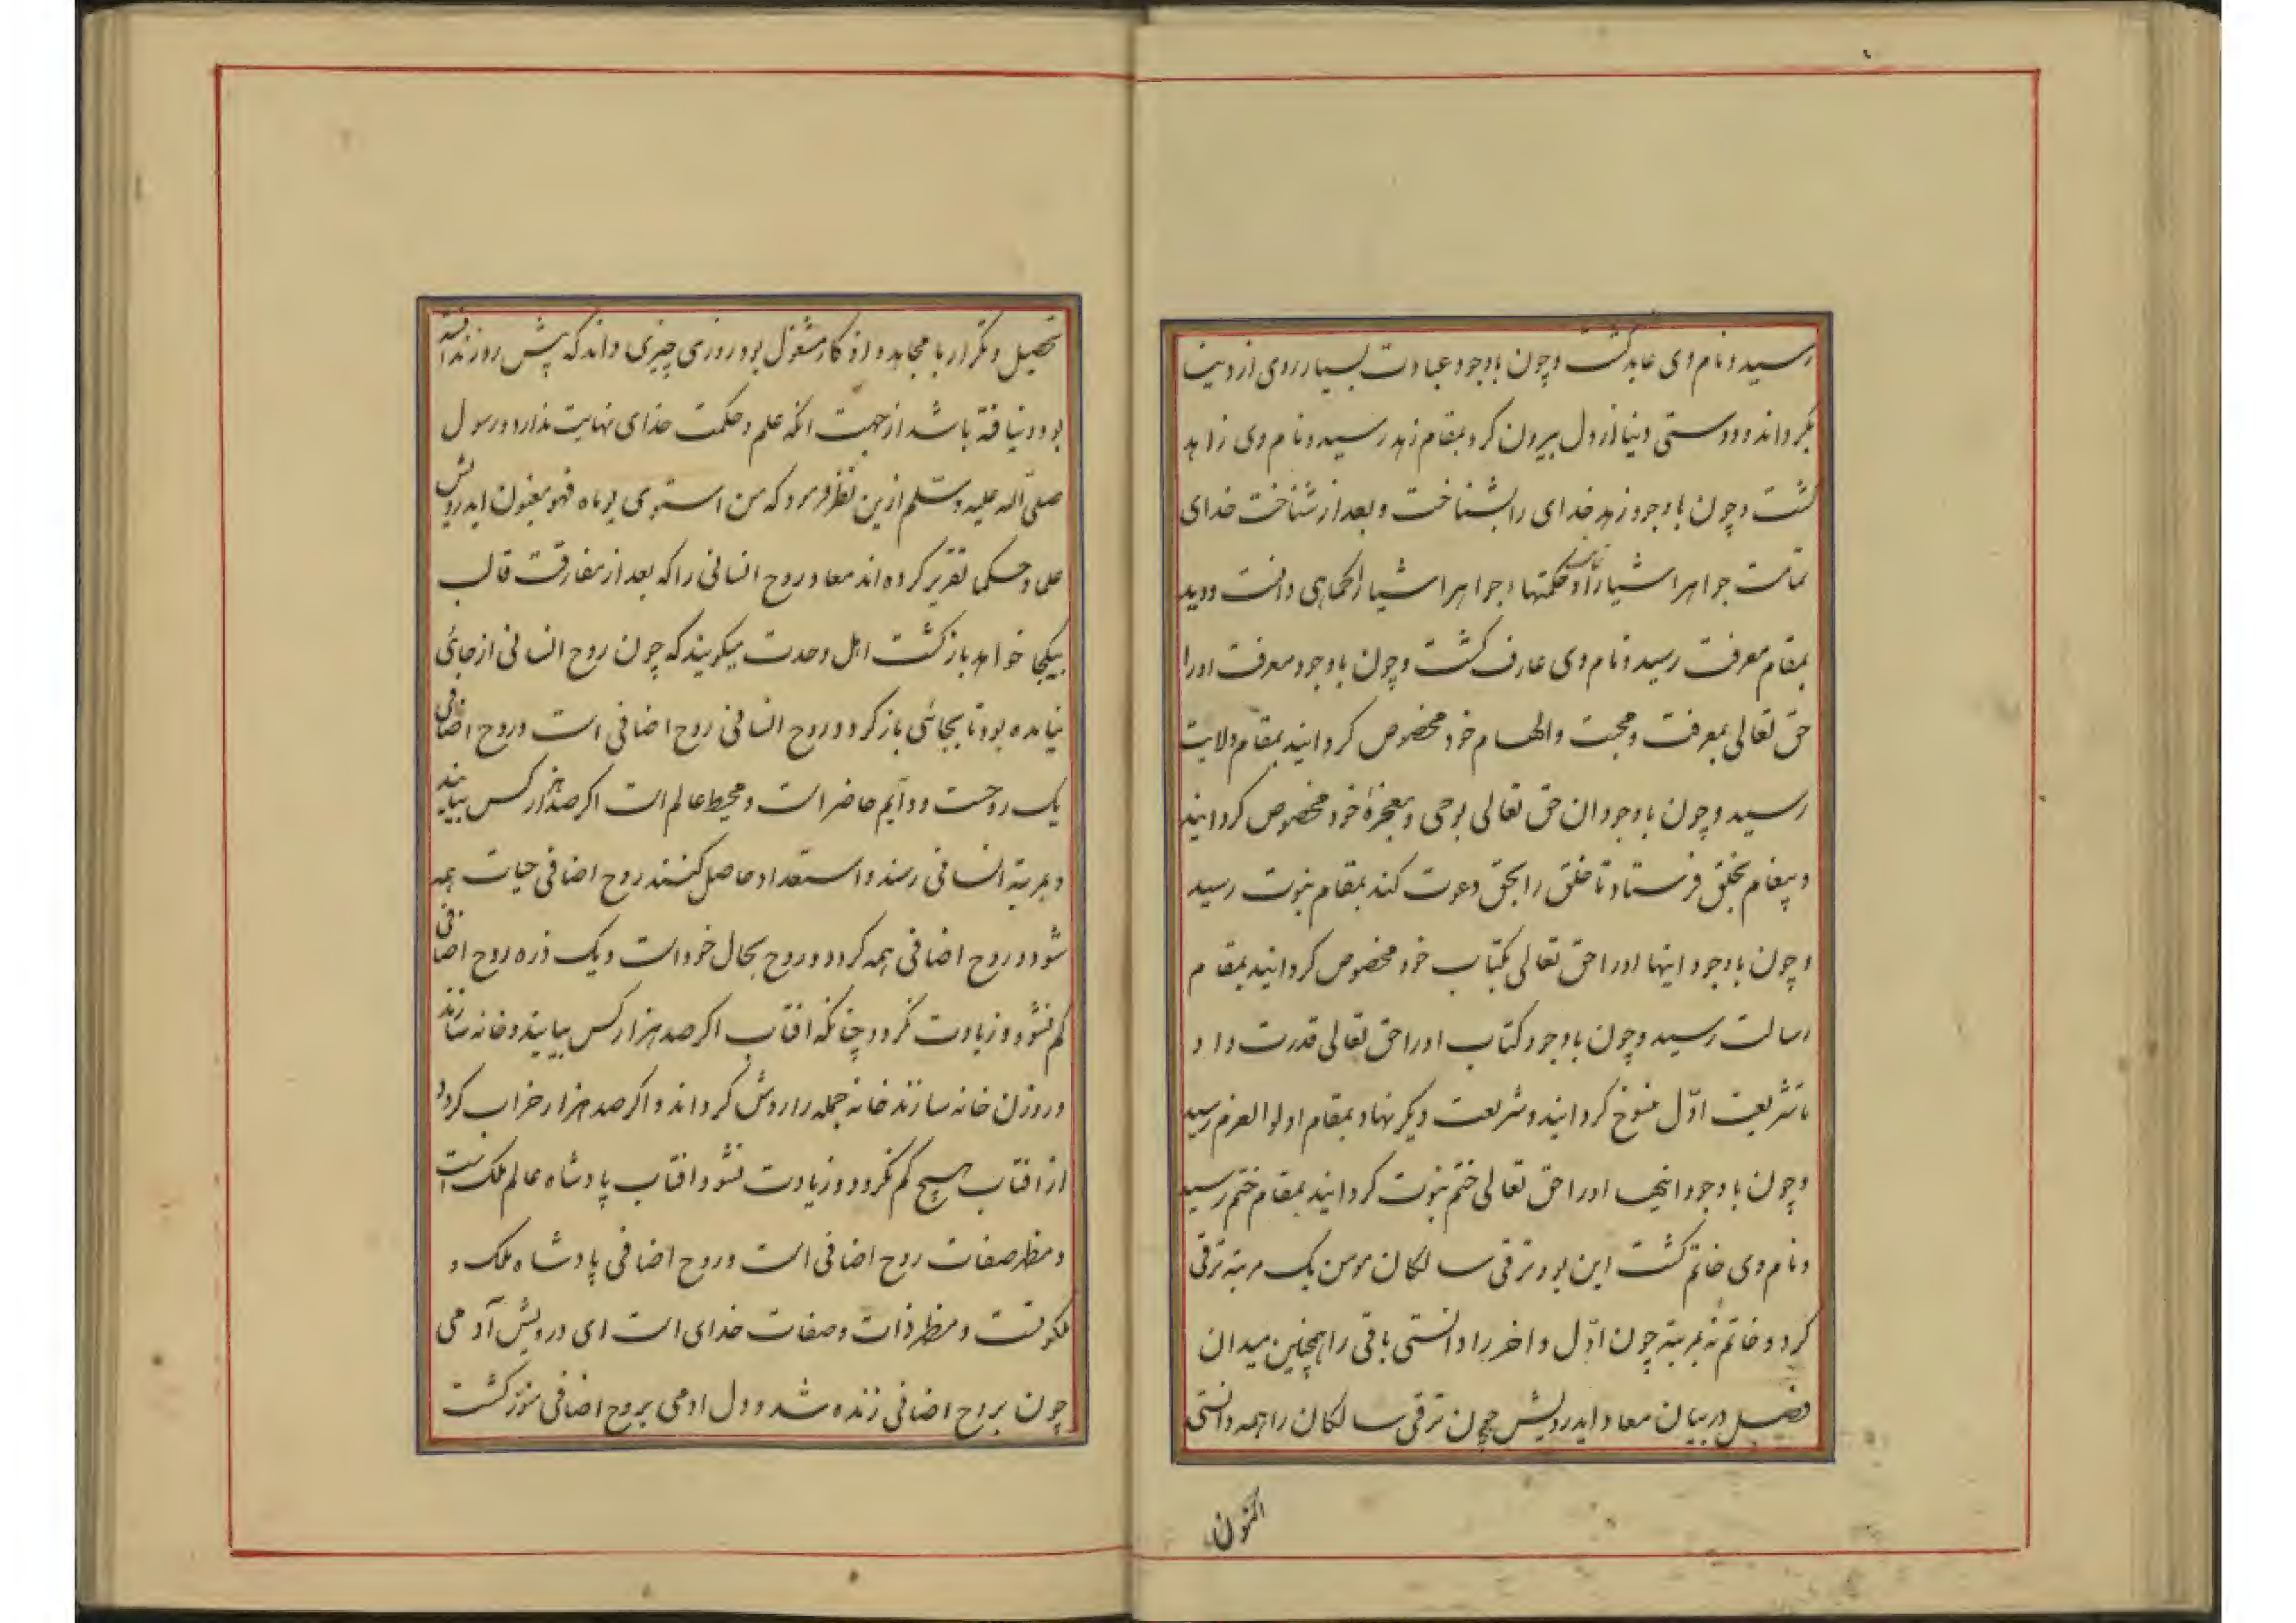 رسید و نام وی عابد کشت و چون باوجود عبادت بسیار روی از دنیا
بکرداند و دوستی دنیا از دل بیرون کرد بمقام زهد رسید و نام وی زاهد
کشت و چون باوجود زهد خدای را بشناخت و بعد از شناخت خدای
تمامت جواهر اشیا را و حکمتهاء جواهر اشیا را کماهی دانست و دید
بمقام معرفت رسید و نام وی عارف کشت و چون باوجود معرفت او را
حق تعالی بمعرفت و محبت و الهام خود مخصوص کردانید بمقام ولایت
رسید و چون باوجود ان حق تعالی بوحی و معجزهٔ خود مخصوص کردانید
و پیغام بخلق فرستاد تا خلق را بحق دعوت کند بمقام نبوت رسید
و چون باوجود اینها او را حق تعالی بکتاب خود مخصوص کردانید بمقام
رسالت رسید و چون باوجود کتاب او را حق تعالی قدرت داد
تا شریعت اوّل منسوخ کردانید و شریعت دیکر نهاد بمقام اولوالعزم رسید
و چون باوجود اینها او را حق تعالی ختم نبوت کردانید بمقام ختم رسید
و نام وی خاتم کشت این بود ترقی سالکان مومن یک مرتبه ترقی
کرد و خاتم نه مرتبه چون اوّل و اخر را دانستی باقی را همچنین میدان
فصل در بیان معاد ایدرویش چون ترقی سالکان را همه دانستی
اکنون
تحصیل و تکرار با مجاهده و اذکار مشغول بود روزی چیزی داند که پیش روز ندانسته
بود و نیافته باشد از جهت انکه علم و حکمت خدای نهایت ندارد و رسول
صلی الله علیه و سلم ازین نظر فرمود که من استوی یوماه فهو مغبون ایدرویش
علما و حکما تقریر کرده اند معاد روح انسانی را که بعد از مفارقت قالب
بیکجا خواهد بازکشت اهل وحدت میکویند که چون روح انسانی از جائی
نیامده بود تا بجائی باز کردد و روح انسانی روح اضافی است و روح اضافی
یک روحست و دایم حاضر است و محیط عالم است اکر صد هزار کس بیایند
و بمرتبهٔ انسانی رسند و استعداد حاصل کنند روح اضافی حیات همه
شود و روح اضافی همه کردد و روح بحال خود است و یک ذره روح اضافی
کم نشود و زیادت نکردد چنانکه افتاب اکر صد هزار کس بیایند و خانه سازند
و روزن خانه سازند خانه جمله را روشن کرداند و اکر صد هزار خراب کردد
از افتاب هیچ کم نکردد و زیادت نشود افتاب پادشاه عالم ملک است
و مظهر صفات روح اضافی است و روح اضافی پادشاه ملک و
ملکوتست و مظهر ذات و صفات خدای است ای درویش آدمی
چون بروح اضافی زنده شد و دل ادمی بروح اضافی منور کشت